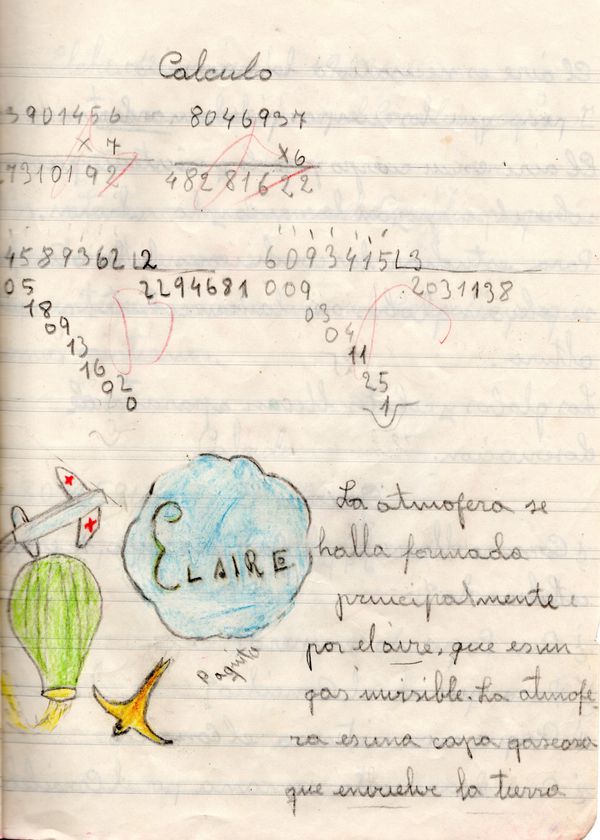 Calculo
3901456 8046937
x 7 x6
27310192 48281622
4589362 L2 6093415 L3
05 2294681 009 2031138
18 03
09 04
13 11
16 25
02 1
0
El AIRE
Paquito
La atmofera se
halla formada
principalmente
por el aire, que es un
gas invisible. La atmofe-
ra es una capa gaseosa
que envuelve la tierra